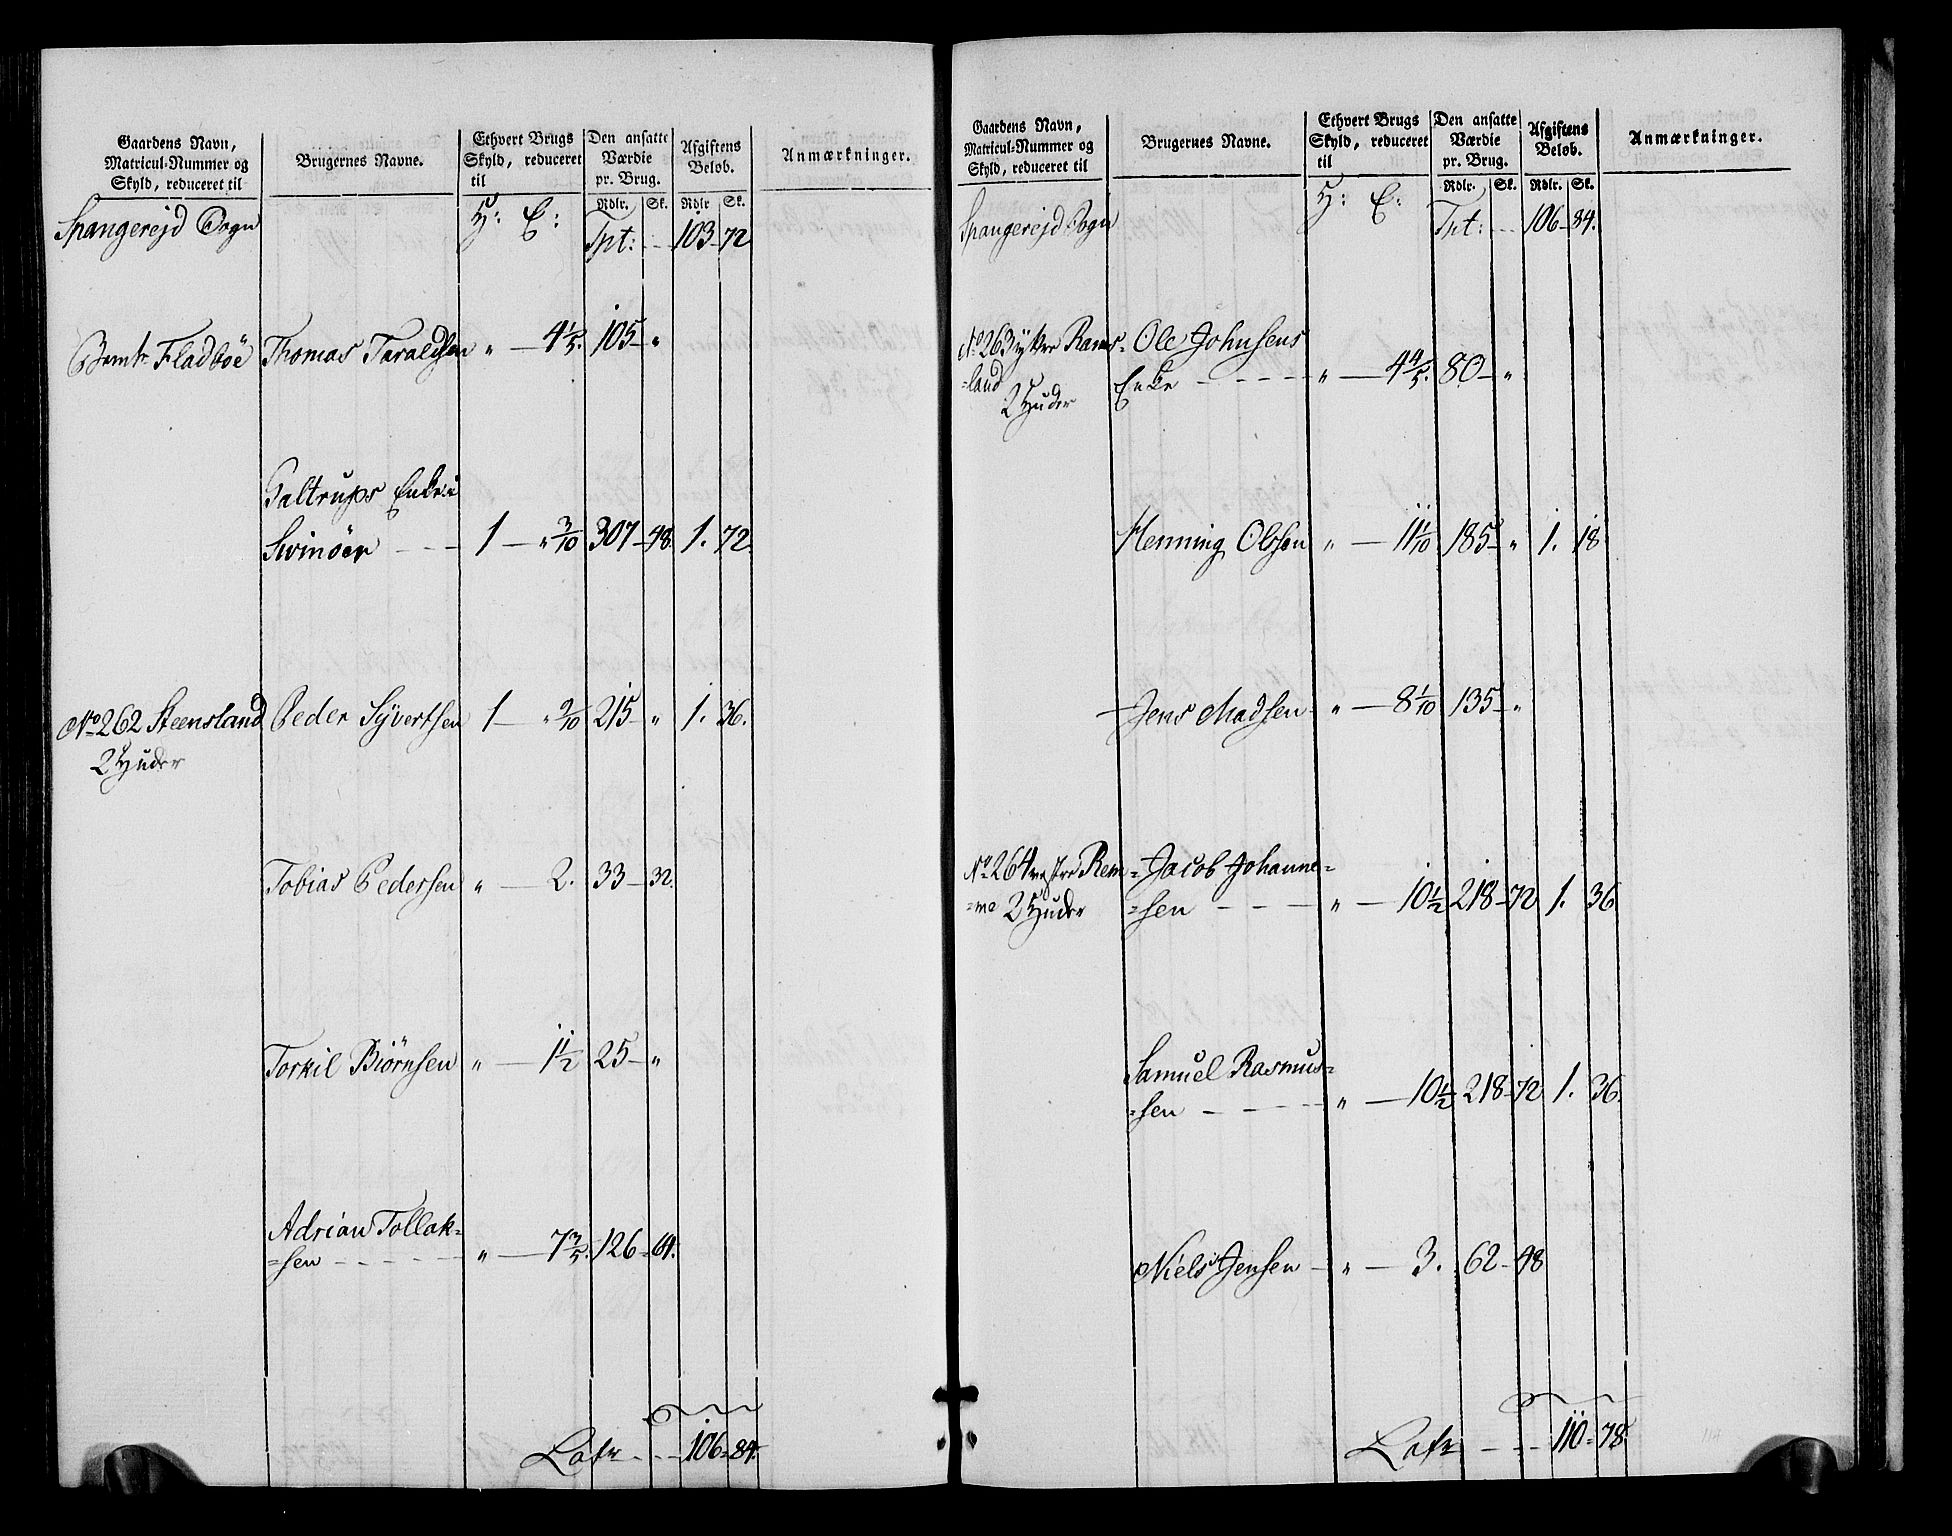 Gaardens Navn, Matricul-Nummer og Skyld, reduceret til
Brugernes Navne.
Ethvert Brugs Skyld, reduceret til
Den ansatte Værdie pr. Brug.
Afgiftens Beløb.
Anmærkninger.
Rdlr. Sk. Rdlr Sk.
Spangerejd Sogn H: E: Tpt: 103 - 72
Fladböe Thomas Taraldsen " — 4 1/5. 105 - "
Galtrups Enke i
Svinöer - - - 1 — " 3/10 307 - 48. 1. 72.
No 262 Steensland Peder Syvertsen 1 — " 2/10 215 - " 1. 36.
2 Huder
Tobias Pedersen " — 2. 33 - 32.
Torkil Biörnsen " — 1 1/2 25 - "
Adrian Tollak=
=sen - - - - - " — 7 3/5. 126 = 64.
Lafr - - - 106 = 84.
Gaardens Navn, Matricul-Nummer og Skyld, reduceret til
Brugernes Navne.
Ethvert Brugs Skyld, reduceret til
Den ansatte Værdie pr. Brug.
Afgiftens Beløb.
Anmærkninger.
Rdlr. Sk. Rdlr. Sk.
Spangerejd Sogn H: E: Tpt: - - 106 - 84.
No 263 ytre Rams= Ole Johnsens
=land Enke - - - - - " — 4 4/5. 80 - "
2 Huder
Henning Olssen " — 11 1/10 185 - " 1. 18
Jens Madsen - " — 8 1/10 135 - "
No 264 vestre Rem= Jacob Johanne=
=me 2 Huder =sen - - - " — 10 1/2 218 - 72 1. 36
Samuel Rasmus=
=sen - - - - " — 10 1/2 218 - 72 1. 36.
Niels Jensen - " — 3. 62 - 48
Lafr - - - 110 = 78